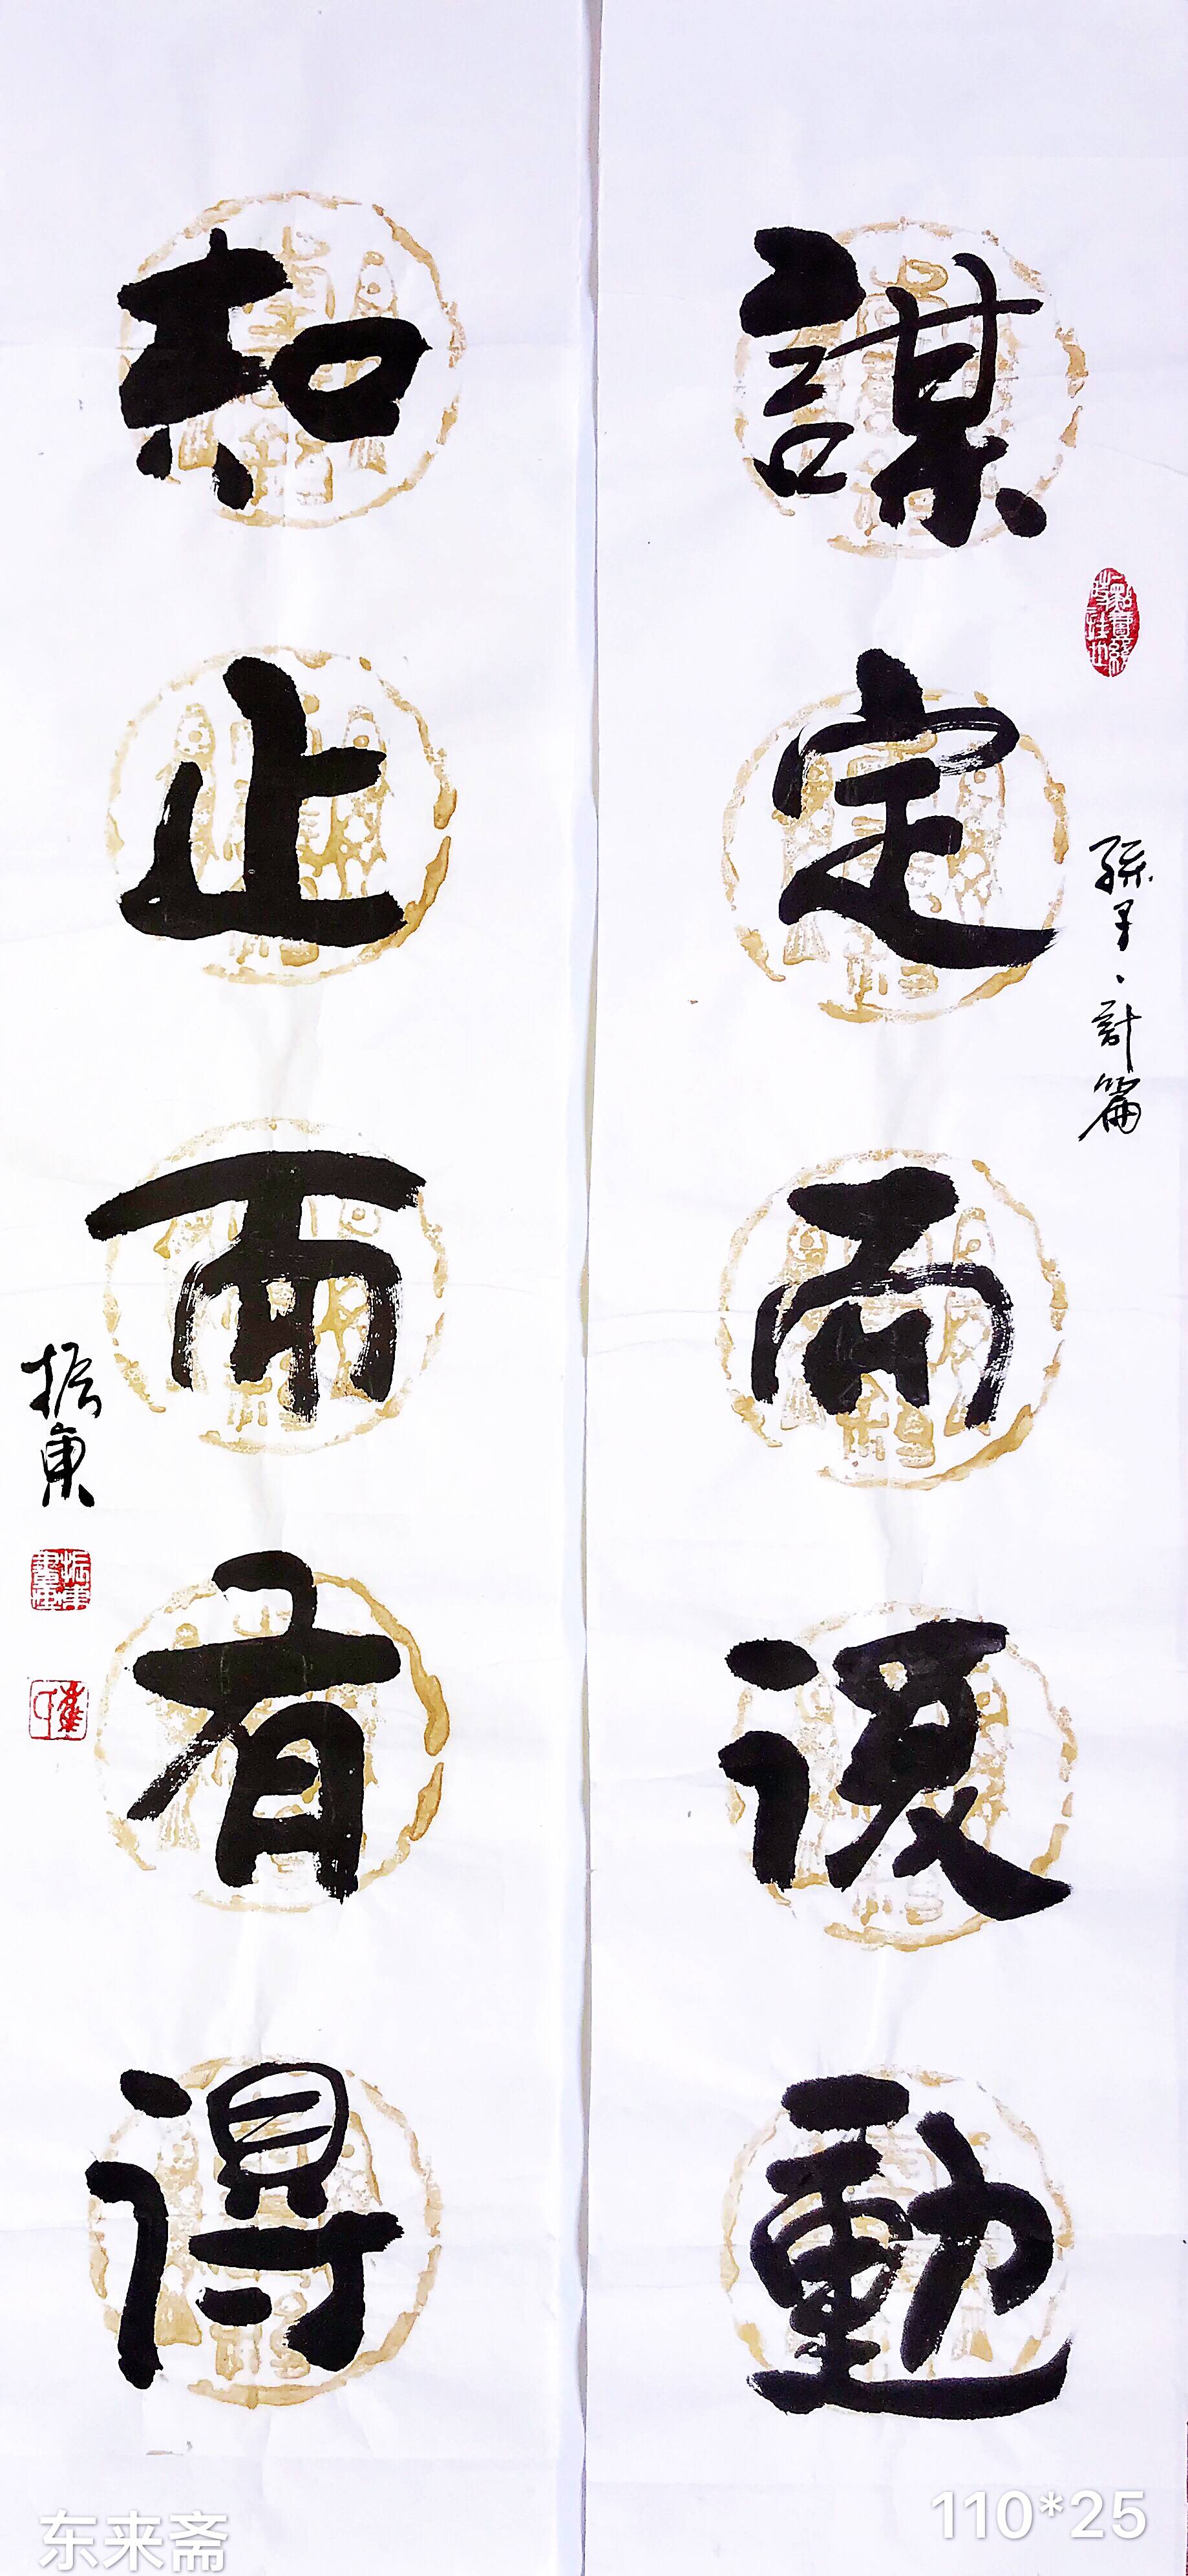 謀定而後動
孫子、計篇
知止而有得
振東
东来斋
110*25